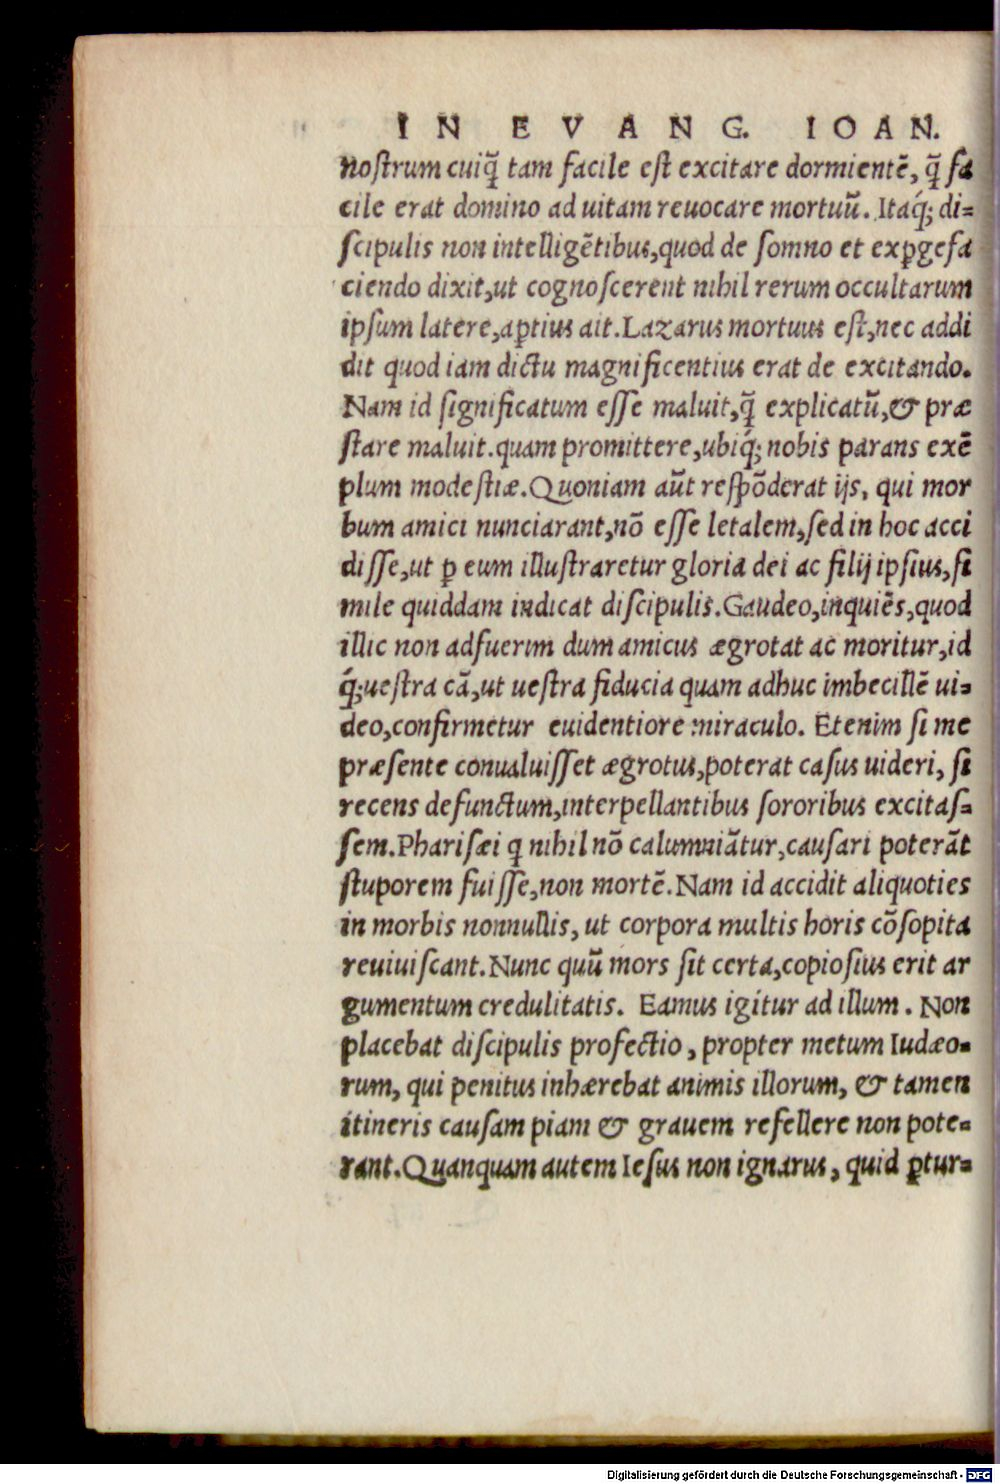 IN EVANG. IOAN.
nostrum cuiq̃ tam facile est excitare dormientē, q̃ fa
cile erat domino ad uitam reuocare mortuũ. Itaq́; di=
scipulis non intelligētibus, quod de somno et exꝑgefa
ciendo dixit, ut cognoscerent nihil rerum occultarum
ipsum latere, aꝑtius ait. Lazarus mortuus est, nec addi
dit quod iam dictu magnificentius erat de excitando.
Nam id significatum esse maluit, q̃ explicatũ, & præ
stare maluit. quam promittere, ubiq́; nobis parans exē
plum modestiæ. Quoniam aũt respōderat ijs, qui mor
bum amici nunciarant, nō esse letalem, sed in hoc acci
disse, ut ꝑ eum illustraretur gloria dei ac filij ipsius, si
mile quiddam indicat discipulis. Gaudeo, inquiēs, quod
illic non adfuerim dum amicus ægrotat ac moritur, id
q́; uestra cā, ut uestra fiducia quam adhuc imbecillē ui=
deo, confirmetur euidentiore miraculo. Etenim si me
præsente conualuisset ægrotus, poterat casus uideri, si
recens defunctum, interpellantibus sororibus excitas=
sem. Pharisæi q nihil nō calumniātur, causari poterāt
stuporem fuisse, non mortē. Nam id accidit aliquoties
in morbis nonnullis, ut corpora multis horis cōsopita
reuiuiscant. Nunc quũ mors sit certa, copiosius erit ar
gumentum credulitatis. Eamus igitur ad illum. Non
placebat discipulis profectio, propter metum Iudæo=
rum, qui penitus inhærebat animis illorum, & tamen
itineris causam piam & grauem refellere non pote=
rant. Quanquam autem Iesus non ignarus, quid ꝑtur=
Digitalisierung gefördert durch die Deutsche Forschungsgemeinschaft - DFG